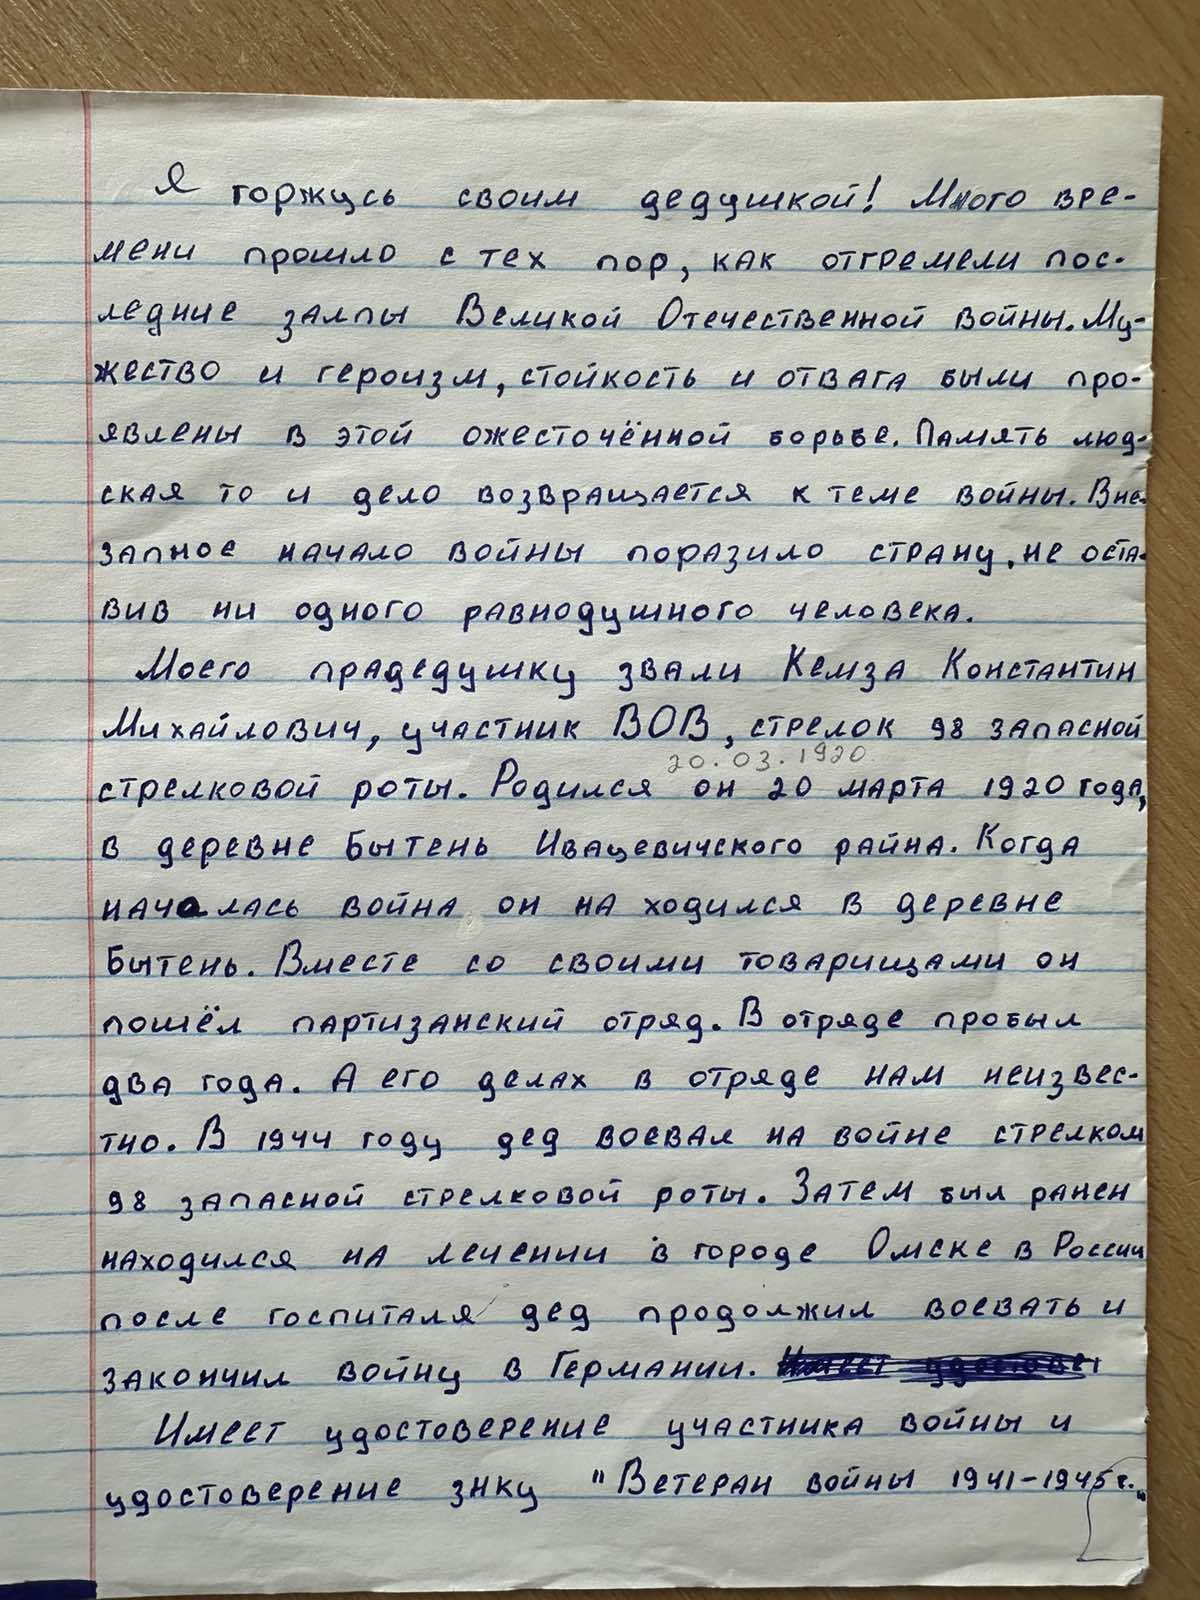 Я горжусь своим дедушкой! Много вре-
мени прошло с тех пор, как отгремели пос-
ледние залпы Великой Отечественной войны. Му-
жество и героизм, стойкость и отвага были про-
явлены в этой ожесточённой борьбе. Память люд-
ская то и дело возвращается к теме войны. Вне-
запное начало войны поразило страну, не оста-
вив ни одного равнодушного человека.
Моего прадедушку звали Кемза Константин
Михайлович, участник ВОВ, стрелок 98 запасной
20.03.1920
стрелковой роты. Родился он 20 марта 1920 года,
в деревне Бытень Ивацевичского райна. Когда
началась война он на ходился в деревне
Бытень. Вместе со своими товарищами он
пошёл партизанский отряд. В отряде пробыл
два года. А его делах в отряде нам неизвес-
тно. В 1944 году дед воевал на войне стрелком
98 запасной стрелковой роты. Затем был ранен
находился на лечении в городе Омске в России
после госпиталя дед продолжил воевать и
закончил войну в Германии.
Имеет удостоверение участника войны и
удостоверение знку "Ветеран войны 1941-1945 г."